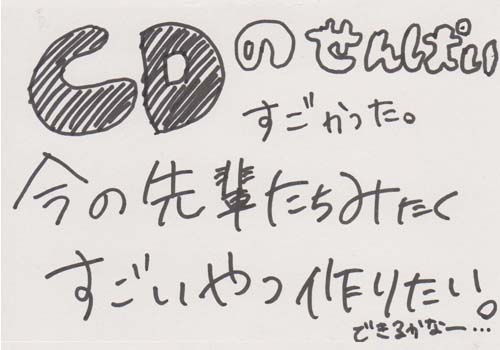 CDのせんぱい
すごかった。
今の先輩たちみたく
すごいやつ作りたい。
できるかなー…